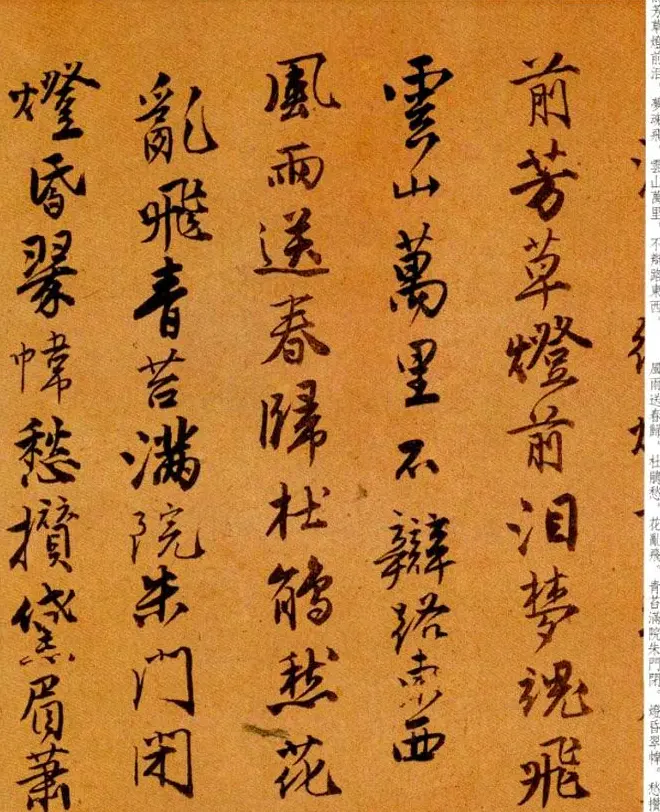 前芳草燈前泪夢魂飛
雲山萬里不辯路東西
風雨送春歸杜鵑愁花
亂飛青苔滿院朱門閉
燈昏翠幃愁攢黛眉蕭
芳草燈前泪。夢魂飛。雲山萬里。不辯路東西。 風雨送春歸。杜鵑愁。花亂飛。青苔滿院朱門閉。燈昏翠幃。愁攢